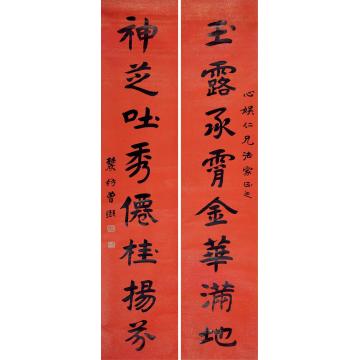 玉露承霄金華滿地
心娱仁兄法家正之
神芝吐秀僊桂揚芬
農髯曾熙